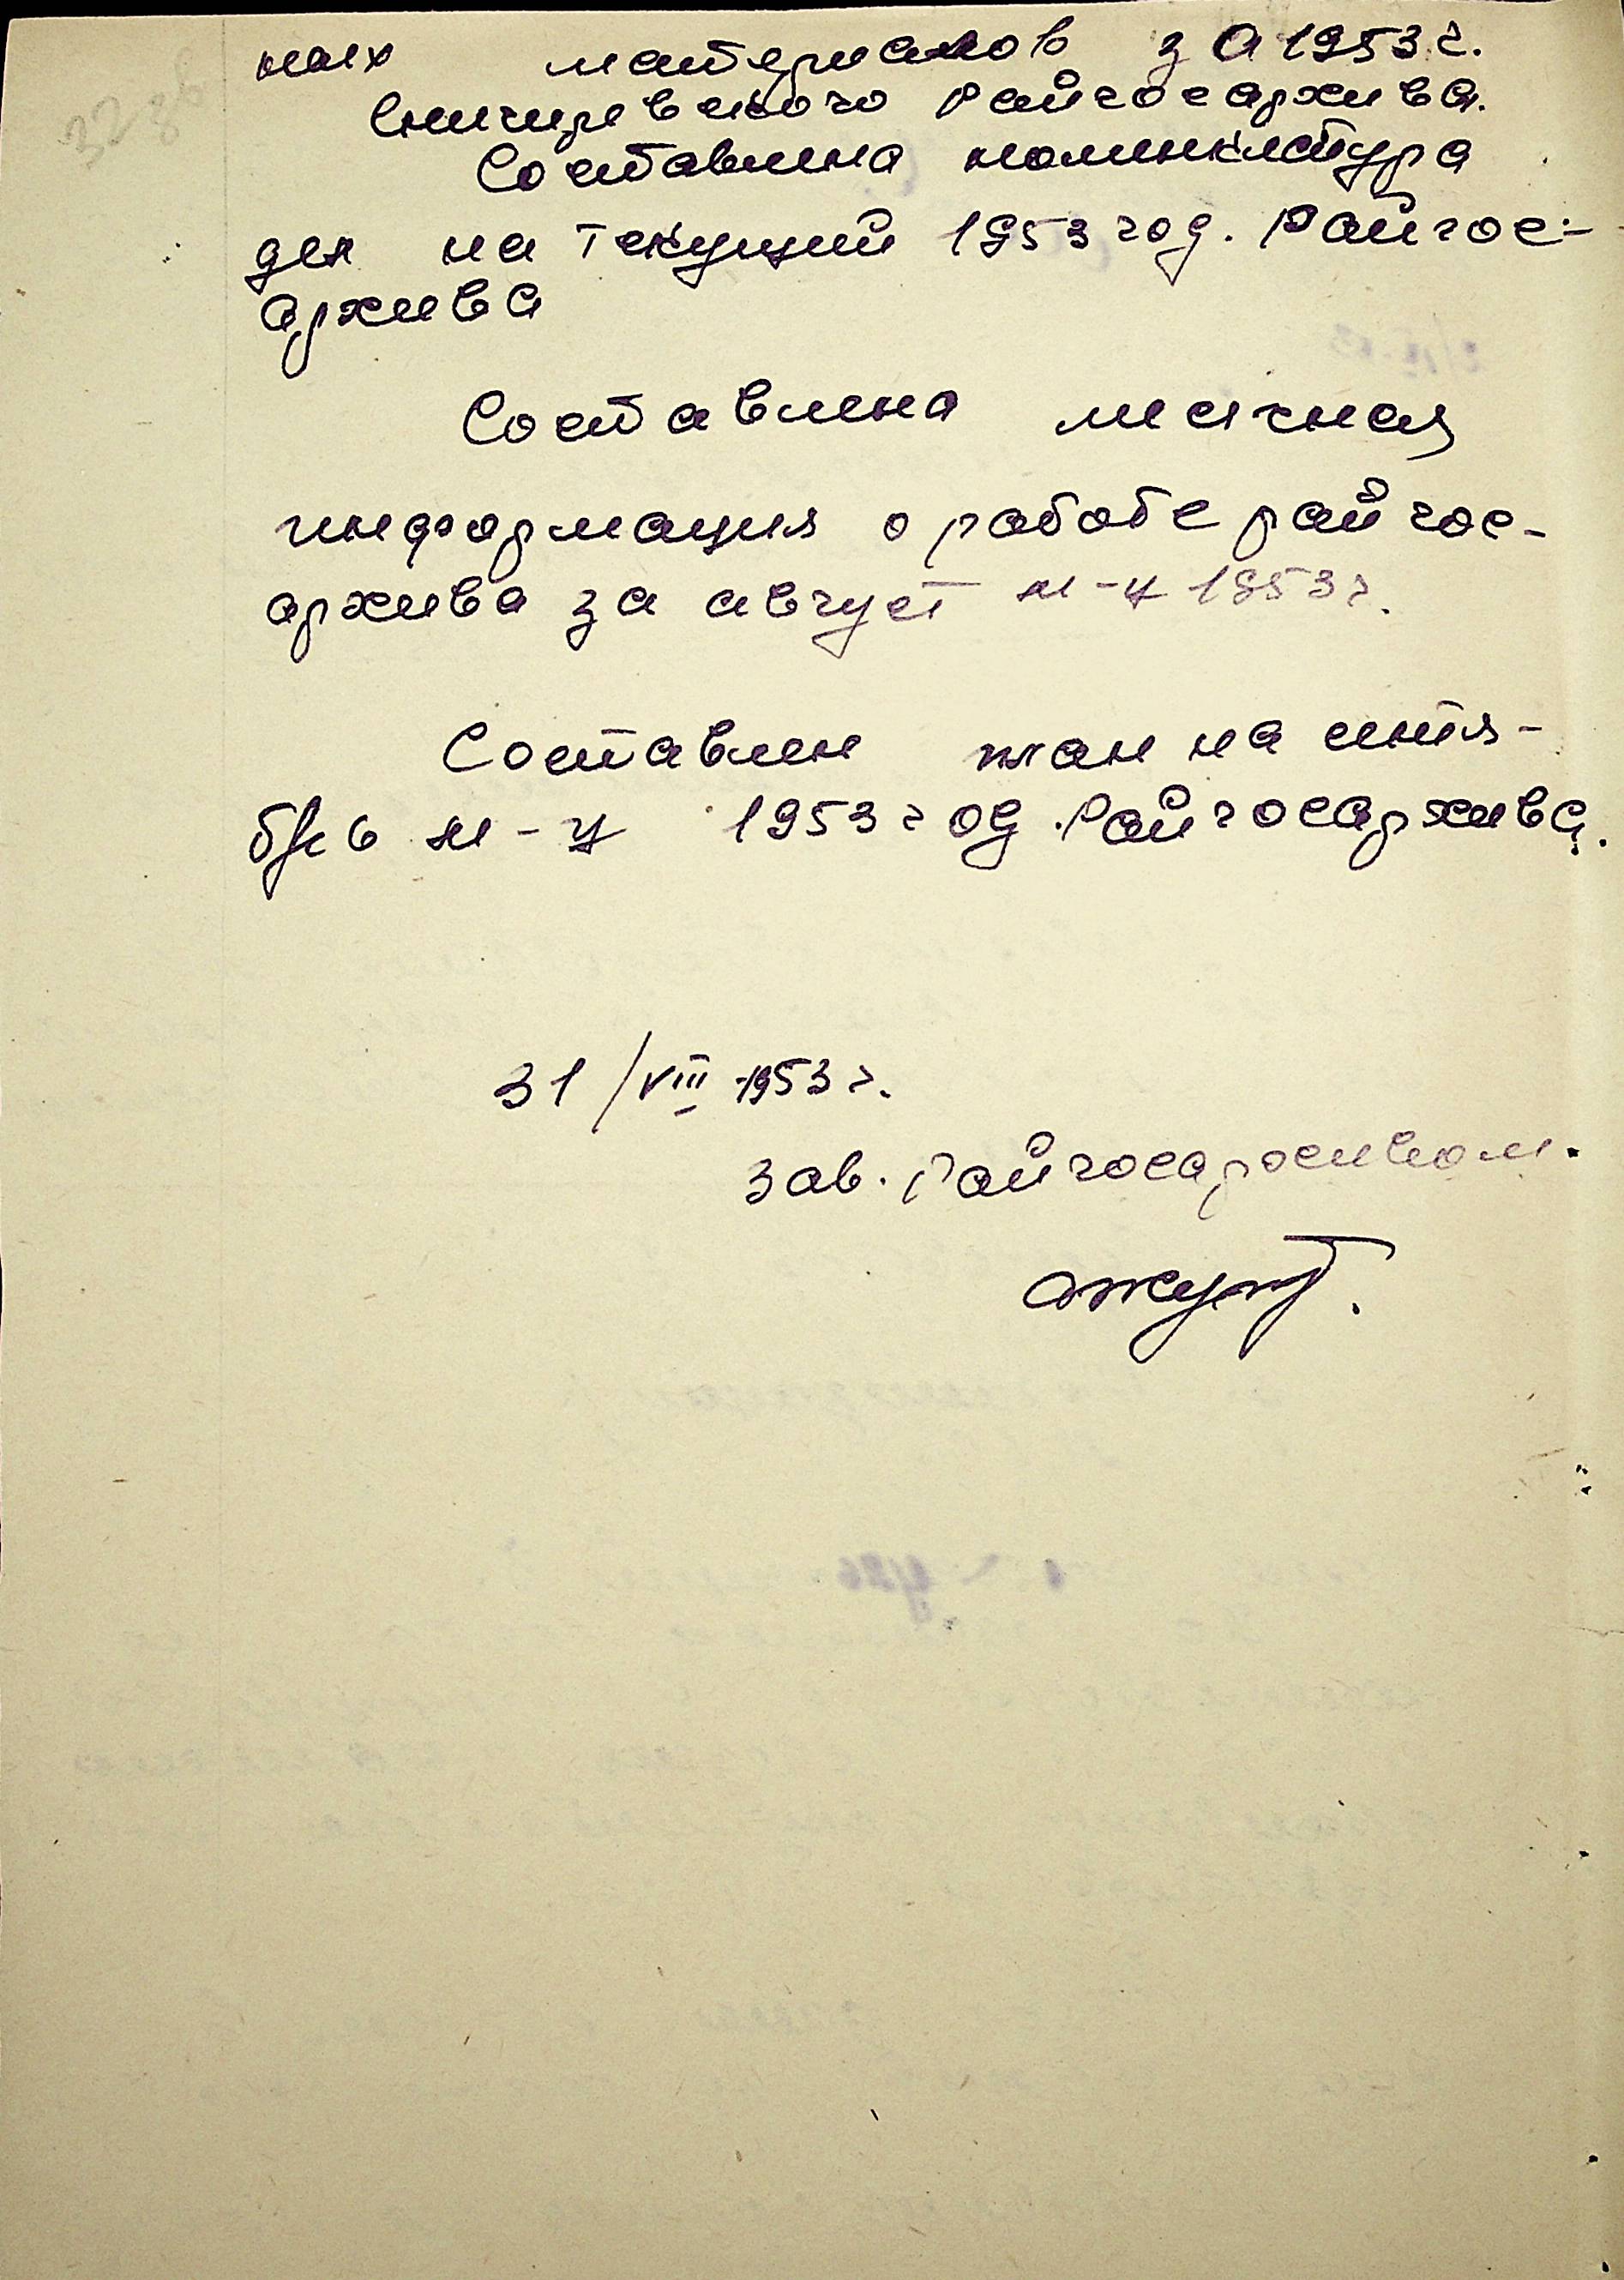 ных материалов за 1953 г.
Снигиревского Райгосархива.
Составлена номенклатура
дел на текущий 1953 год. Райгос-
архива
Составлена
информация о работе райгос-
архива за август м-ц 1953 г.
Составлен план на сентя-
брь м-ц 1953 год Райгосархива.
31/VIII-1953 г.
Зав. Райгосархивом.